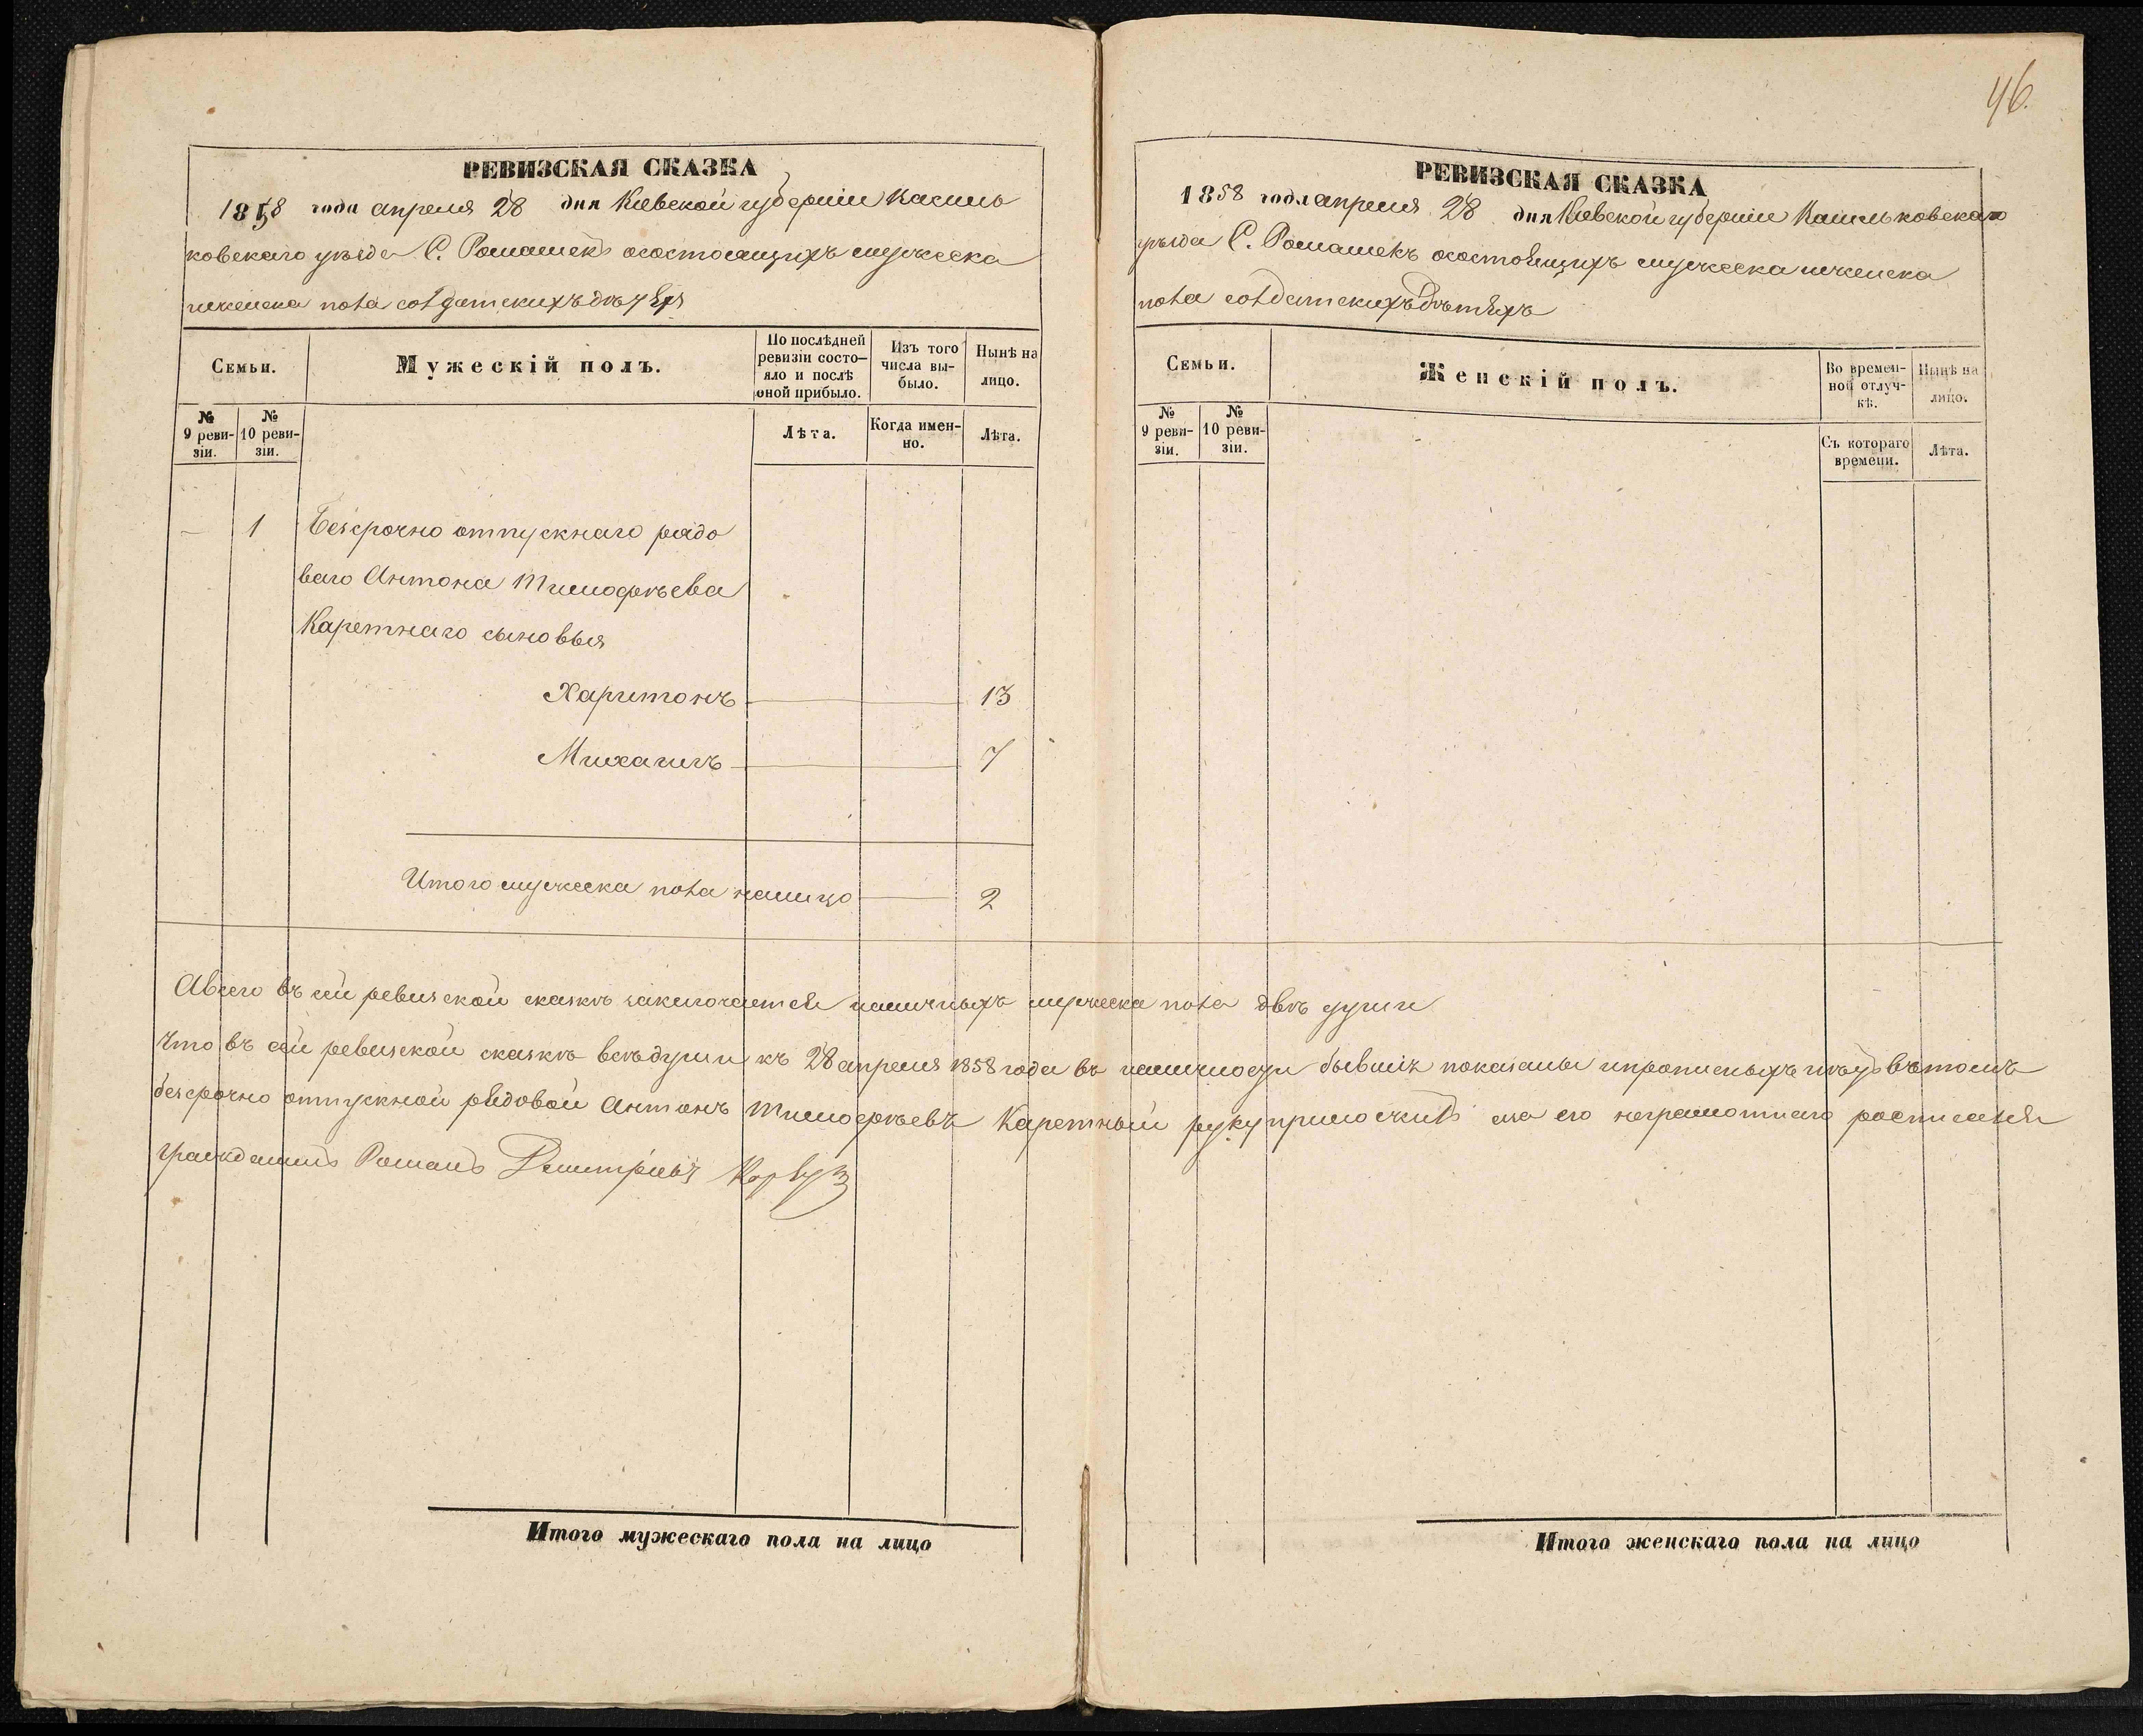 РЕВИЗСКАЯ СКАЗКА
1858 года апреля 28 дня Кіевской губерніи Василь
ковскаго уѣзда С. Ромашекъ осостоящихъ мужеска
иженска пола солдатскихъ дѣтяхъ
Семьи.
Мужескій полъ.
По послѣдней ревизіи состо-
яло и послѣ оной прибыло.
Изъ того числа вы-
было.
Нынѣ на лицо.
№ 9 реви-
зіи.
№ 10 реви-
зіи.
Лѣта.
Когда имен-
но.
Лѣта.
— 1 Безсрочно отпускнаго рядо
ваго Антона Тимофѣева
Каретнаго сыновья
Харитонъ 13
Михаилъ 7
Итого мужеска пола налицо 2
46.
РЕВИЗСКАЯ СКАЗКА
1858 года апреля 28 дня Кіевской губерніи Васильковскаго
уѣзда С. Ромашекъ осостоящихъ мужеска иженска
пола солдатскихъ дѣтяхъ
Семьи.
Женскій полъ.
Во времен-
ной отлуч-
кѣ.
Нынѣ на лицо.
№ 9 реви-
зіи.
№ 10 реви-
зіи.
Съ котораго времени.
Лѣта.
Авсего въ сей ревизской сказкѣ заключается наличныхъ мужеска пола двѣ души
Что въ сей ревизской сказкѣ всѣ души къ 28 апреля 1858 года въ наличности бывшіе показаны ипрописныхъ нѣтъ вътомъ
безсрочно отпускной рядовой Антонъ Тимофѣевъ Каретный руку приложилъ а за его неграмотнаго росписался
гражданинъ Романъ Демитріевъ
Итого мужескаго пола на лицо
Итого женскаго пола на лицо